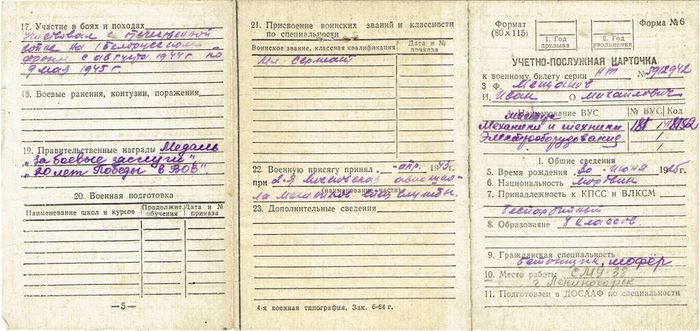 17. Участие в боях и походах
Участвовал в отечественной
войне на 1 Белорусском
фронте с августа 1944 г по
9 мая 1945 г
18. Боевые ранения, контузии, поражения
19. Правительственные награды Медаль
„За боевые заслуги"
„20 лет Победы в ВОВ"
20. Военная подготовка
Наименование школ и курсов
Продолжит. обучения
Дата и № приказа
— 5 —
21. Присвоение воинских званий и классности
по специальности
Воинское звание, классная квалификация
Дата и № приказа
Мл. Сержант
22. Военную присягу принял „ — " апр. 1943 г.
при 2-й Московской авиашко-
(наименование части)
ла механиков спец службы.
23. Дополнительные сведения
4-я военная типография. Зак. 6-64 г.
Формат
(80×115)
Форма № 6
1. Год призыва
2. Год увольнения
УЧЕТНО-ПОСЛУЖНАЯ КАРТОЧКА
к военному билету серии НТ № 5912942
3 Ф.
И. Иван О. Михайлович
Наименование ВУС
№ ВУС
Код
Механики и техники
электрооборудования
I. Общие сведения
5. Время рождения 20 июня 1925 г.
6. Национальность мордвин
7. Принадлежность к КПСС и ВЛКСМ
беспартийный
8. Образование 8 классов
9. Гражданская специальность
бетонщик, шофёр
10. Место работы СМУ-38
г. Лениногорск
11. Подготовлен в ДОСААФ по специальности